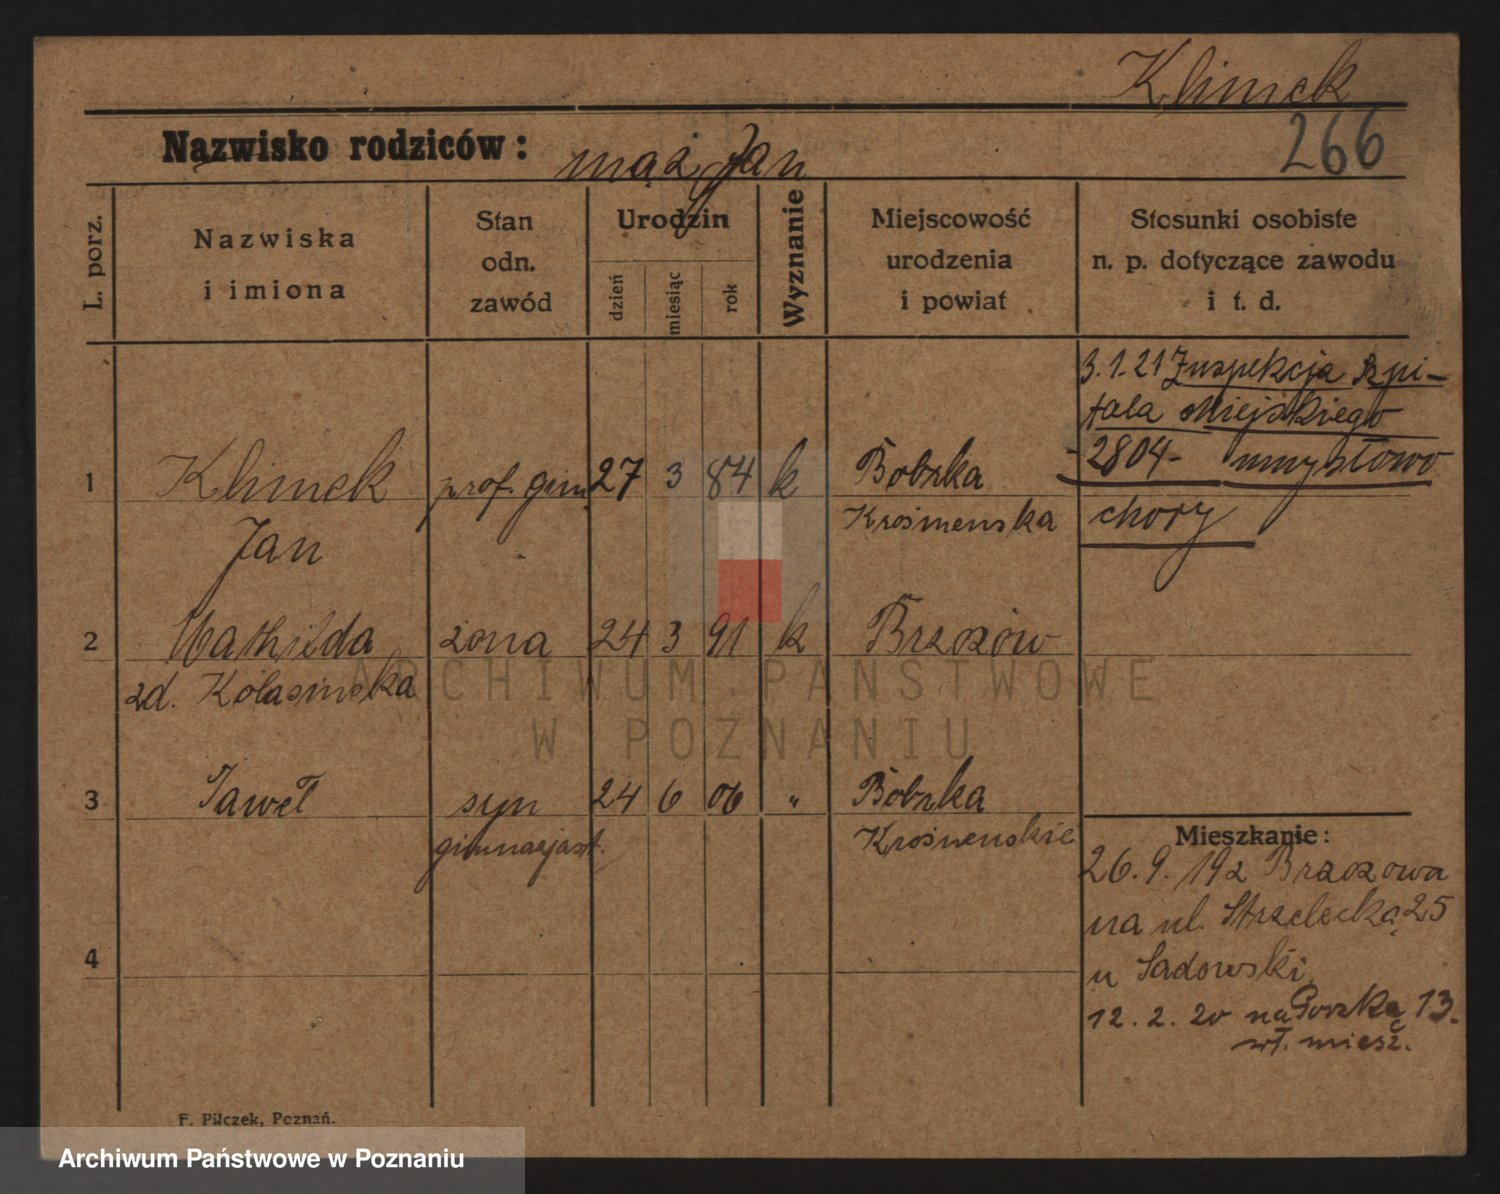 Klimek
266
Nazwisko rodziców: mąż Jan
L. porz.
Nazwiska
i imiona
Stan
odn.
zawód
Urodzin
dzień
miesiąc
rok
Wyznanie
Miejscowość
urodzenia
i powiat
Stosunki osobiste
n. p. dotyczące zawodu
i t. d.
3.1.21 Inspekcja Szpi-
tala Miejskiego
-2804- umysłowo
chory
1 Klimek prof. gimn. 27 3 84 k Bobrka
Jan Krośnienska
2 Mathilda żona 24 3 91 k Brzozów
zd. Kolasinska
3 Paweł syn 24 6 06 " Bobrka
gimnazjast. Krośnienskie
4
Mieszkanie:
26. 9. 19 z Brzozowa
na ul. Strzelecką 25
u Sadowski
12. 2. 20 na 13.
wł. miesz.
F. Pilczek, Poznań.
ARCHIWUM PAŃSTWOWE
W POZNANIU
Archiwum Państwowe w Poznaniu